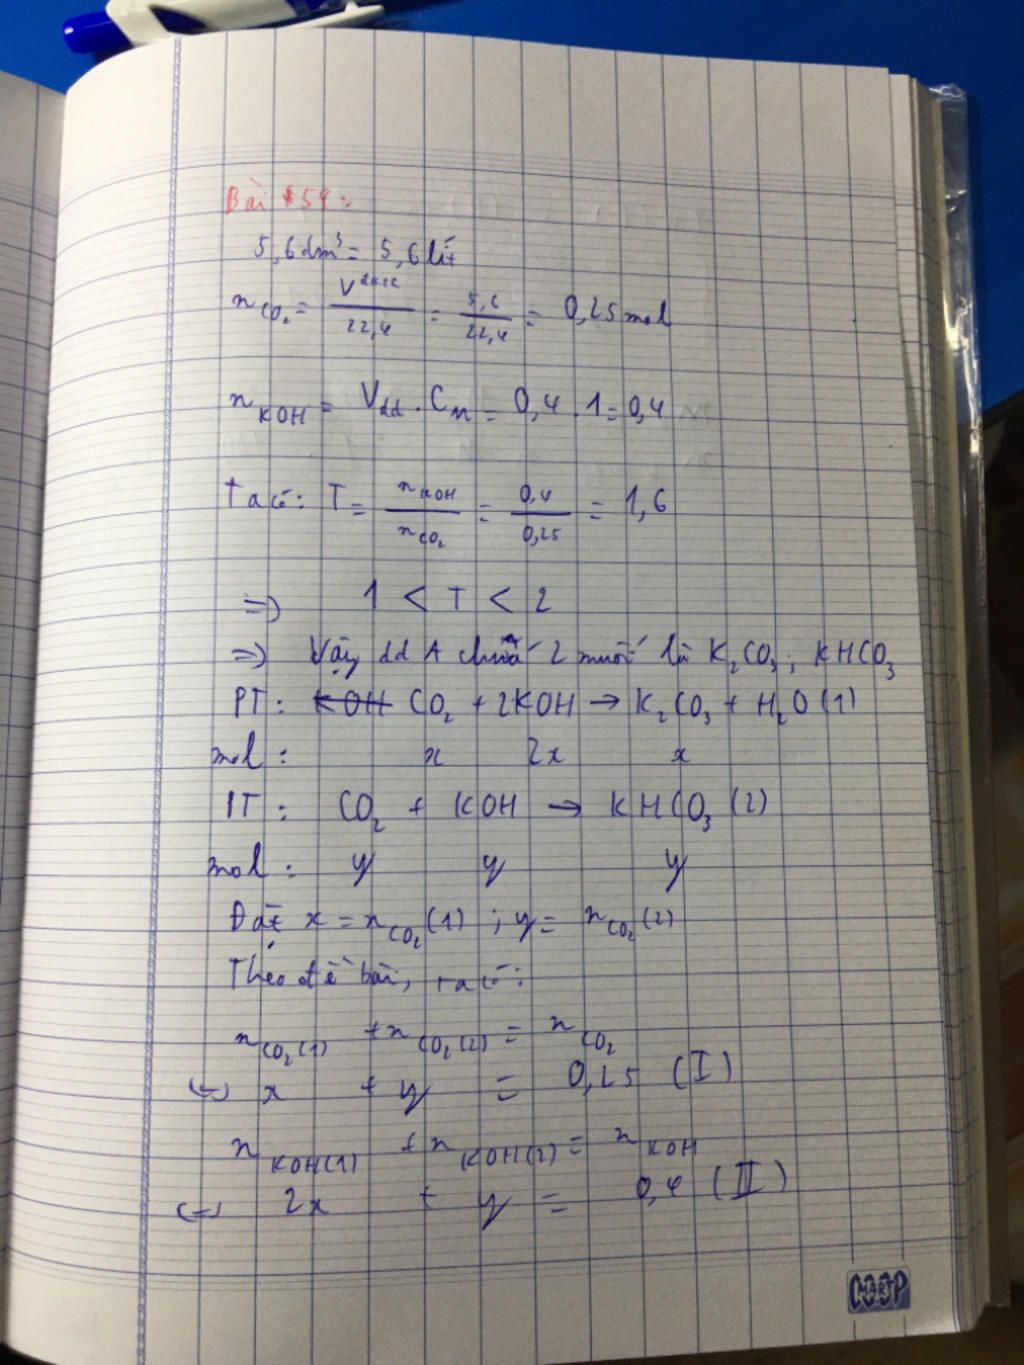 Bài 54:
5,6 dm³ = 5,6 lít
n_CO₂ = V_đktc / 22,4 = 5,6 / 22,4 = 0,25 mol
n_KOH = V_dd . C_M = 0,4 . 1 = 0,4
Ta có: T = n_KOH / n_CO₂ = 0,4 / 0,25 = 1,6
=> 1 < T < 2
=> Vậy dd A chứa 2 muối là K₂CO₃; KHCO₃
PT: KOH CO₂ + 2KOH → K₂CO₃ + H₂O (1)
mol: x 2x x
PT: CO₂ + KOH → KHCO₃ (2)
mol: y y y
Đặt x = n_CO₂(1); y = n_CO₂(2)
Theo đề bài, ta có:
n_CO₂(1) + n_CO₂(2) = n_CO₂
(=) x + y = 0,25 (I)
n_KOH(1) + n_KOH(2) = n_KOH
(=) 2x + y = 0,4 (II)